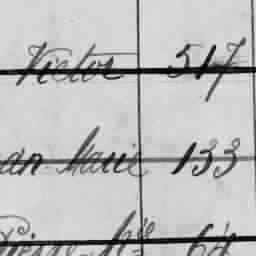 Victor 517
an Marie 133
Pierre M^ie 64